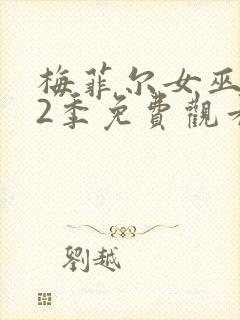 梅菲尔女巫
2季免費觀看
劉越